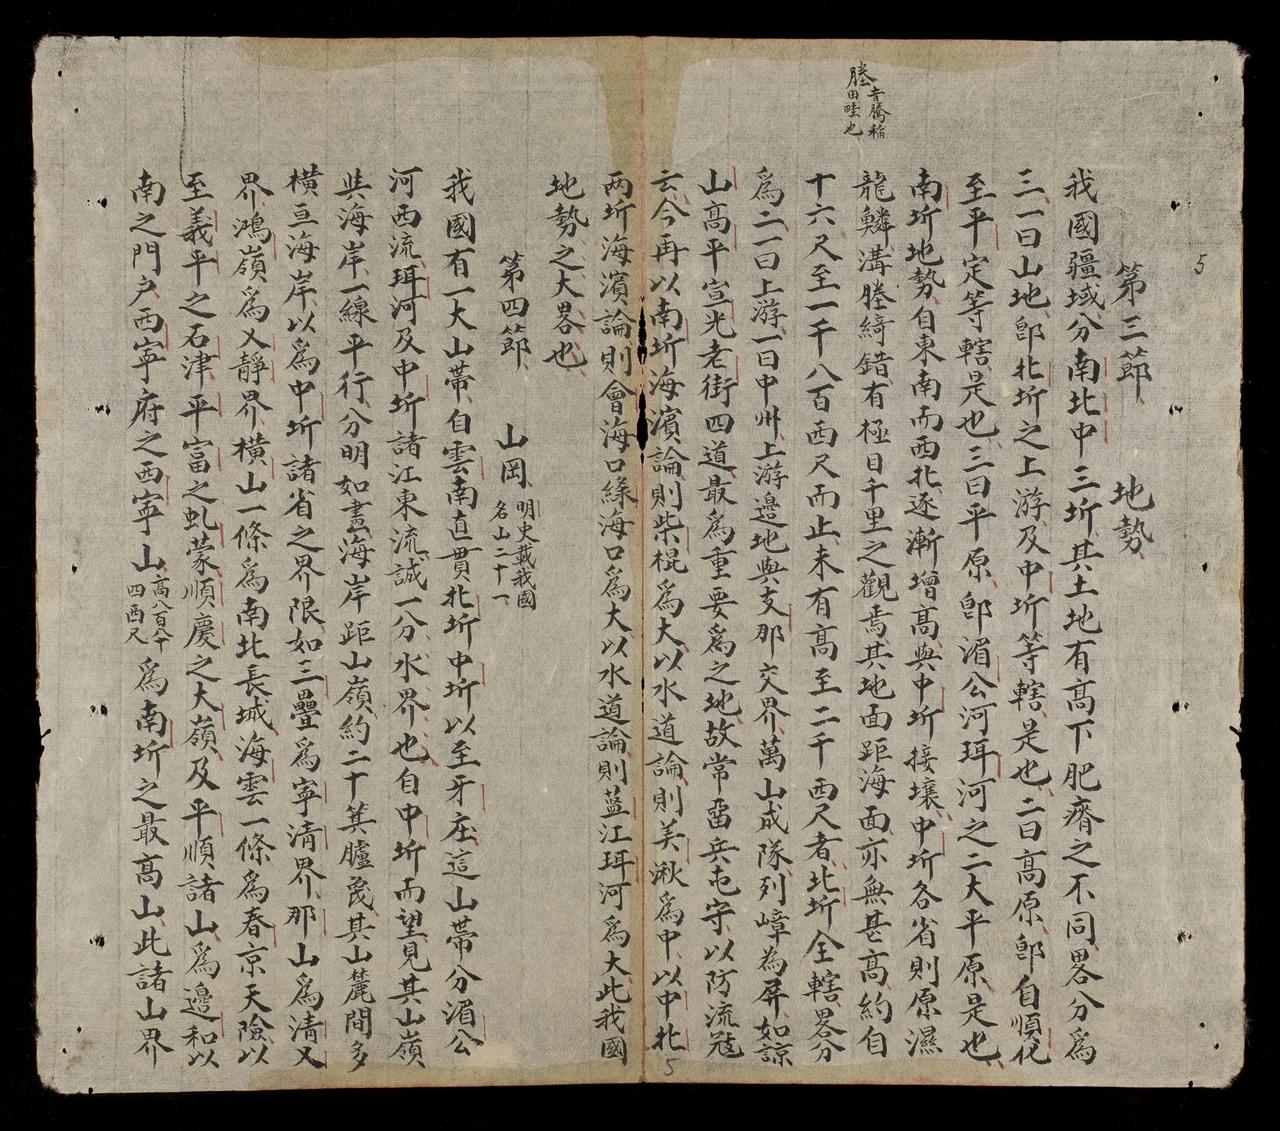 塍音騰稲
田畦也
第三節　地勢
我國疆域分南北中三圻其土地有高下肥瘠之不同畧分爲
三一曰山地卽北圻之上游及中圻等轄是也二曰高原卽自順化
至平定等轄是也三曰平原卽湄公河珥河之二大平原是也
南圻地勢自東南而西北逐漸增高與中圻接壤中圻各省則原濕
龍鱗溝塍綺錯有極目千里之觀焉其地面距海面亦無甚高約自
十六尺至一千八百西尺而止未有高至二千西尺者北圻全轄畧分
爲二一曰上游一曰中州上游邊地與支那交界萬山成隊列嶂為屏如諒
山高平宣光老街四道最爲重要爲之地故常畱兵屯守以防流寇
云今再以南圻海濱論則柴棍爲大以水道論則美湫爲中以中北
两圻海濱論則會海口綠海口爲大以水道論則藍江珥河爲大此我國
地勢之大畧也
第四節　山岡明史載我國名山二十一
我國有一大山帶自雲南直貫北圻中圻以至牙庄這山帶分湄公
河西流珥河及中圻諸江東流誠一分水界也自中圻而望見其山嶺
與海岸一線平行分明如畫海岸距山嶺約二十箕臚兔其山麓間多
橫亘海岸以爲中圻諸省之界限如三疊爲寧清界那山爲清乂
界鴻嶺爲乂靜界橫山一條爲南北長城海雲一條爲春京天險以
至義平之石津平富之虬蒙順慶之大嶺及平順諸山爲邊和以
南之門户西寧府之西寧山高八百八十四西尺爲南圻之最高山此諸山界
5
5